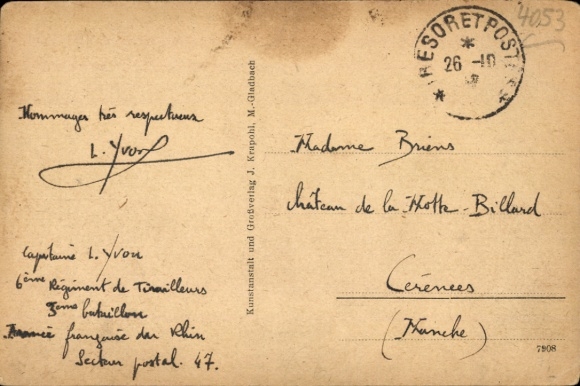 4053
TRESOR ET POSTES
26 - 10
Hommages très respectueux
L. Yvon
Capitaine L. Yvon
6ème Régiment de Tirailleurs
3ème bataillon
Armée française du Rhin
Secteur postal 47.
Kunstanstalt und Großverlag J. Krapohl, M.-Gladbach
Madame Briens
château de la Motte-Billard
Cérences
(Manche)
7908